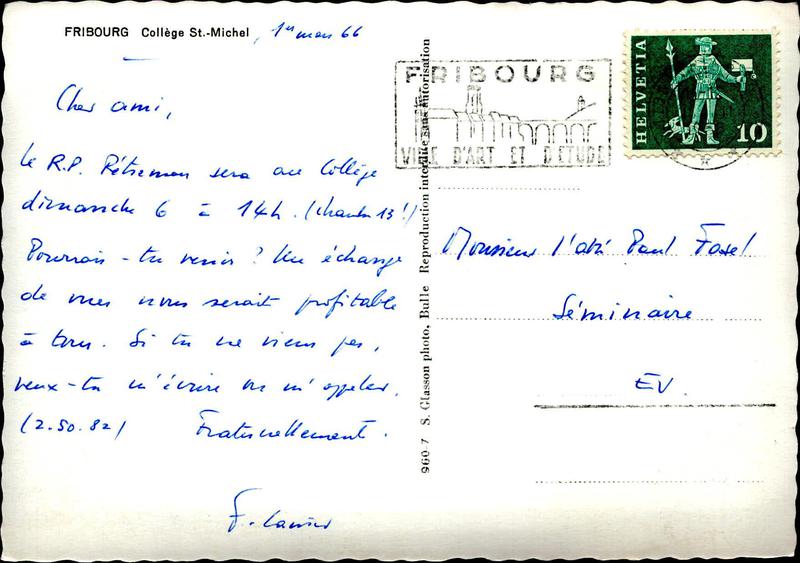 FRIBOURG Collège St.-Michel, 1er mars 66
Cher ami,
le R.P. Rétremon sera au Collège
dimanche 6 à 14h. (chambr 13!)
Pourrais-tu venir? Un échange
de vues nous serait profitable
à tous. Si tu ne viens pas,
veux-tu m'écrire ou m'appeler.
(2.50.82) Fraternellement.
F.
960-7 S. Glasson photo, Bulle Reproduction interdite sans autorisation
FRIBOURG
VILLE D'ART ET D'ETUDE
HELVETIA
10
Monsieur l'abbé Paul Fasel
Séminaire
EV.